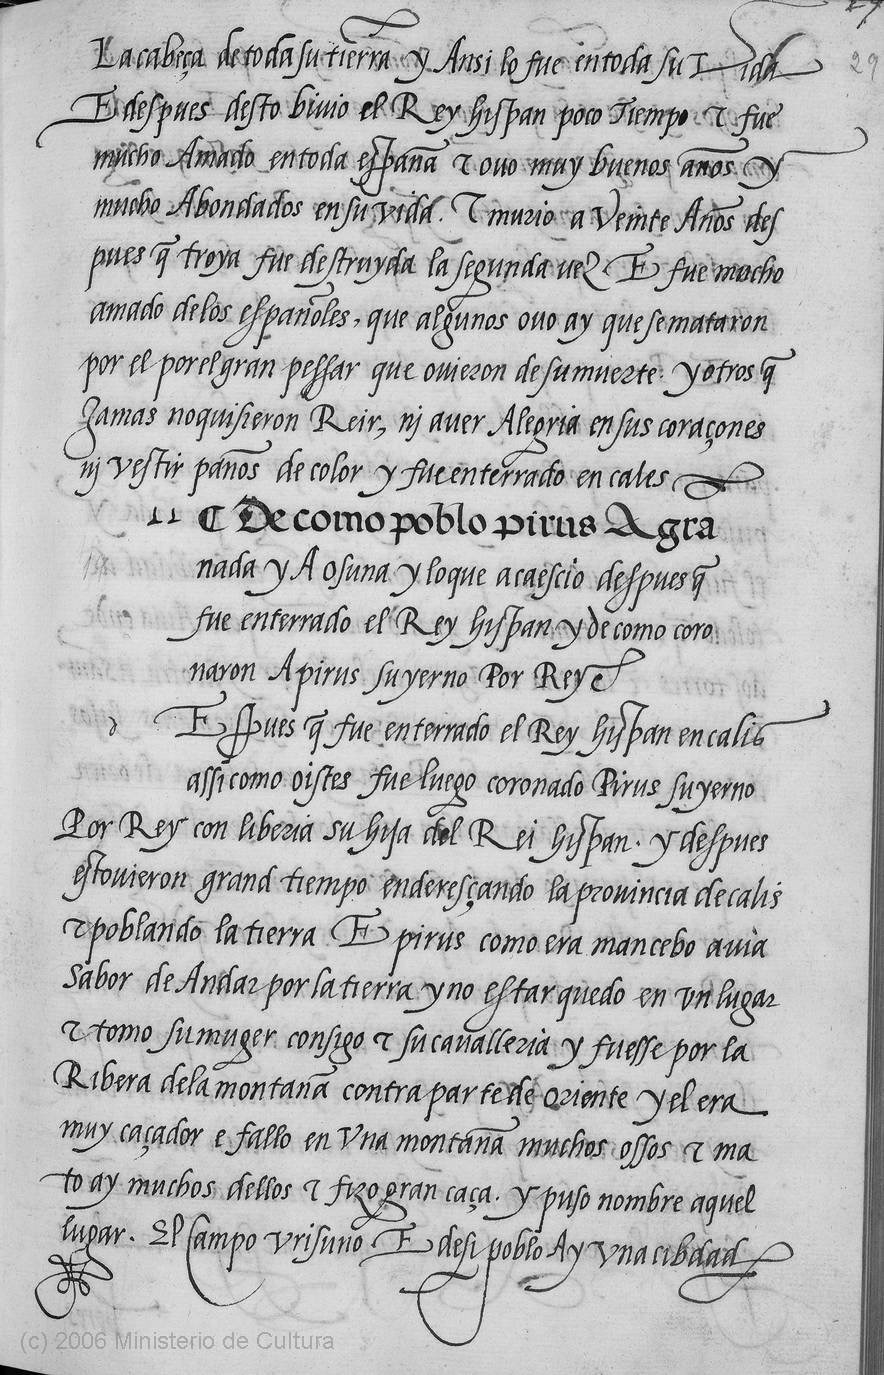 29
29
La cabeça de toda su tierra y Ansi lo fue en toda su Vida
E despues desto bivio el Rey hispan poco Tiempo τ fue
mucho Amado en toda españa τ ovo muy buenos años y
mucho Abondados en su vida. τ murio a Veinte Años des
pues q̃ troya fue destruyda la segunda vez E fue mucho
amado delos españoles, que algunos ovo ay que se mataron
por el por el gran pessar que ovieron de su muerte. y otros q̃
Jamas no quisieron Reir, nj aver Alegria en sus coraçones
nj vestir paños de color y fue enterrado en cales
11 ¶ De como poblo pirus A gra
nada y A osuna y lo que acaescio despues q̃
fue enterrado el Rey hispan y de como coro
naron A pirus su yerno Por Rey
d Espues q̃ fue enterrado el Rey hispan en calis
assi como oistes fue luego coronado Pirus su yerno
Por Rey con liberia su hija del Rei hispan. y despues
estovieron grand tiempo enderesçando la provincia de calis
τ poblando la tierra E pirus como era mancebo avia
Sabor de Andar por la tierra y no estar quedo en vn lugar
τ tomo su muger consigo τ su cavalleria y fuesse por la
Ribera dela montaña contra parte de oriente y el era
muy caçador e fallo en Vna montaña muchos ossos τ ma
to ay muchos dellos τ fizo gran caça. y puso nombre aquel
lugar. El Campo vrisuno E desi poblo Ay vna cibdad
(c) 2006 Ministerio de Cultura